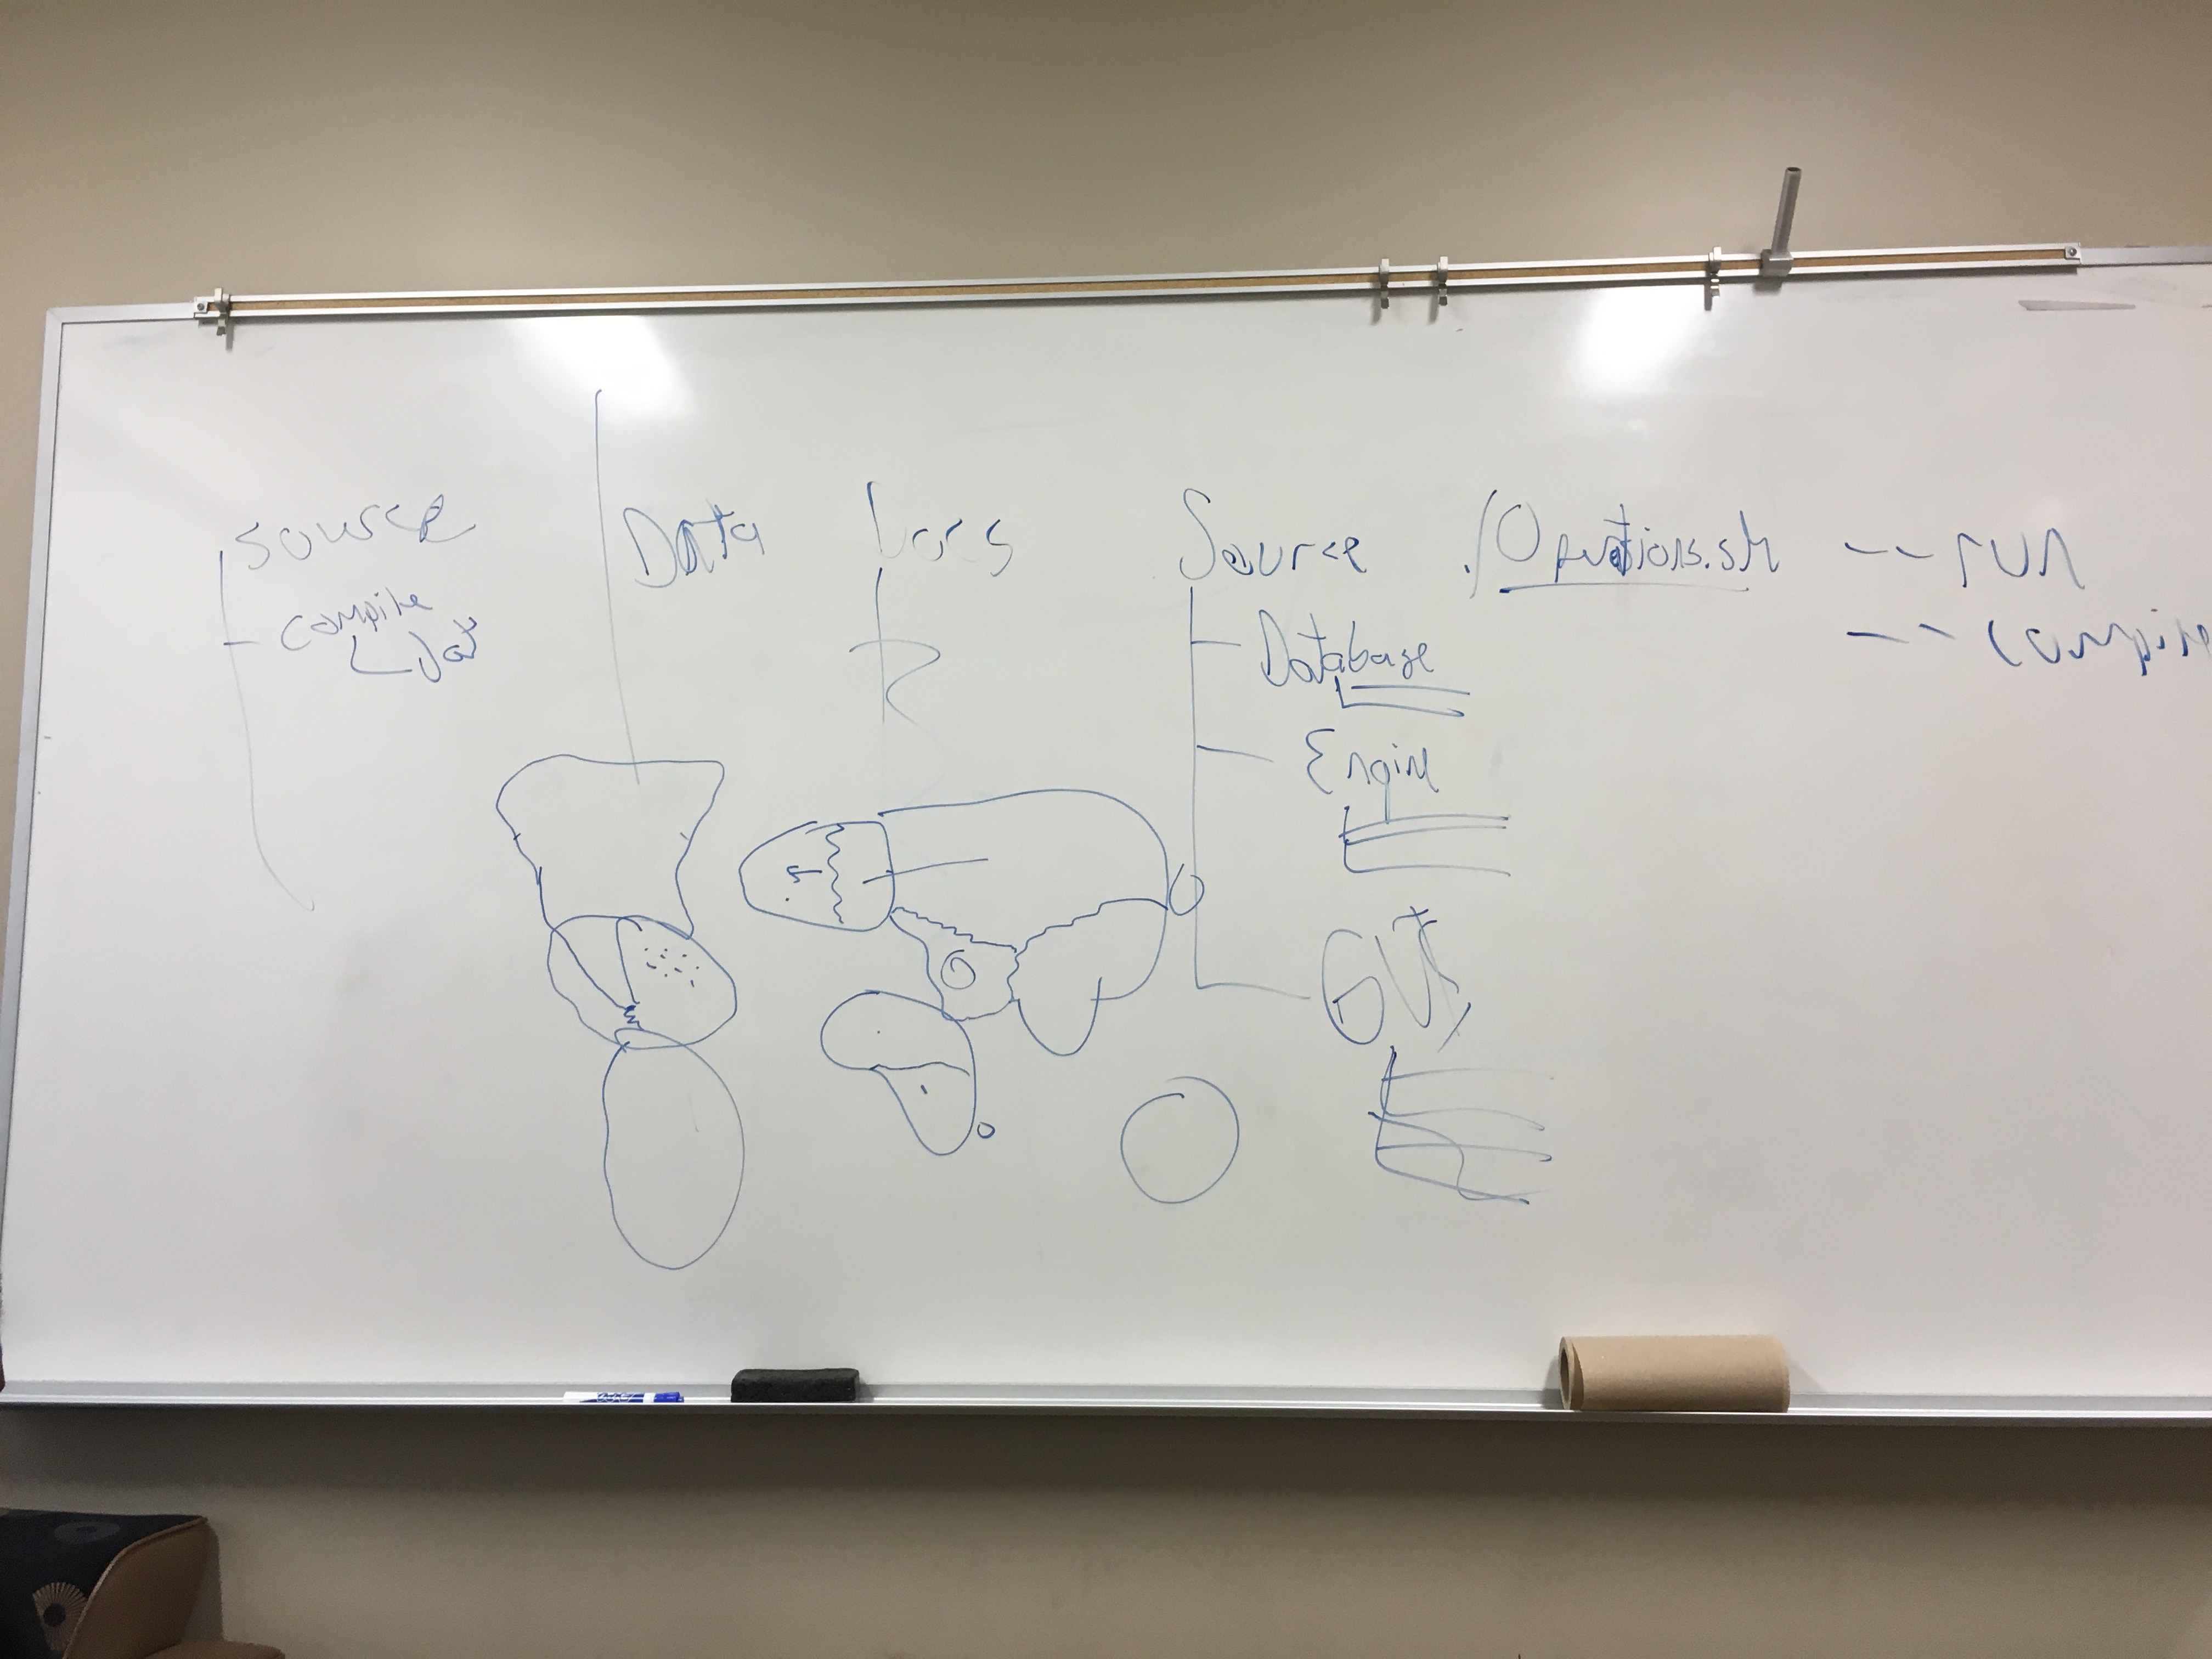 source
compile
Data
Docs
Source
Database
Engine
GUI
./Operations.sh
-- run
-- compile